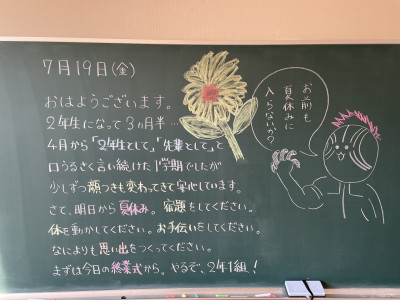 7月19日(金)
おはようございます。
2年生になって3ヵ月半…
4月から「2年生として」「先輩として」と
口うるさく言い続けた1学期でしたが
少しずつ顔つきも変わってきて安心しています。
さて、明日から夏休み。宿題をしてください。
体を動かしてください。お手伝いをしてください。
なによりも思い出をつくってください。
まずは今日の終業式から。やるぞ、2年1組!
お前も
夏休みに
入らないか?